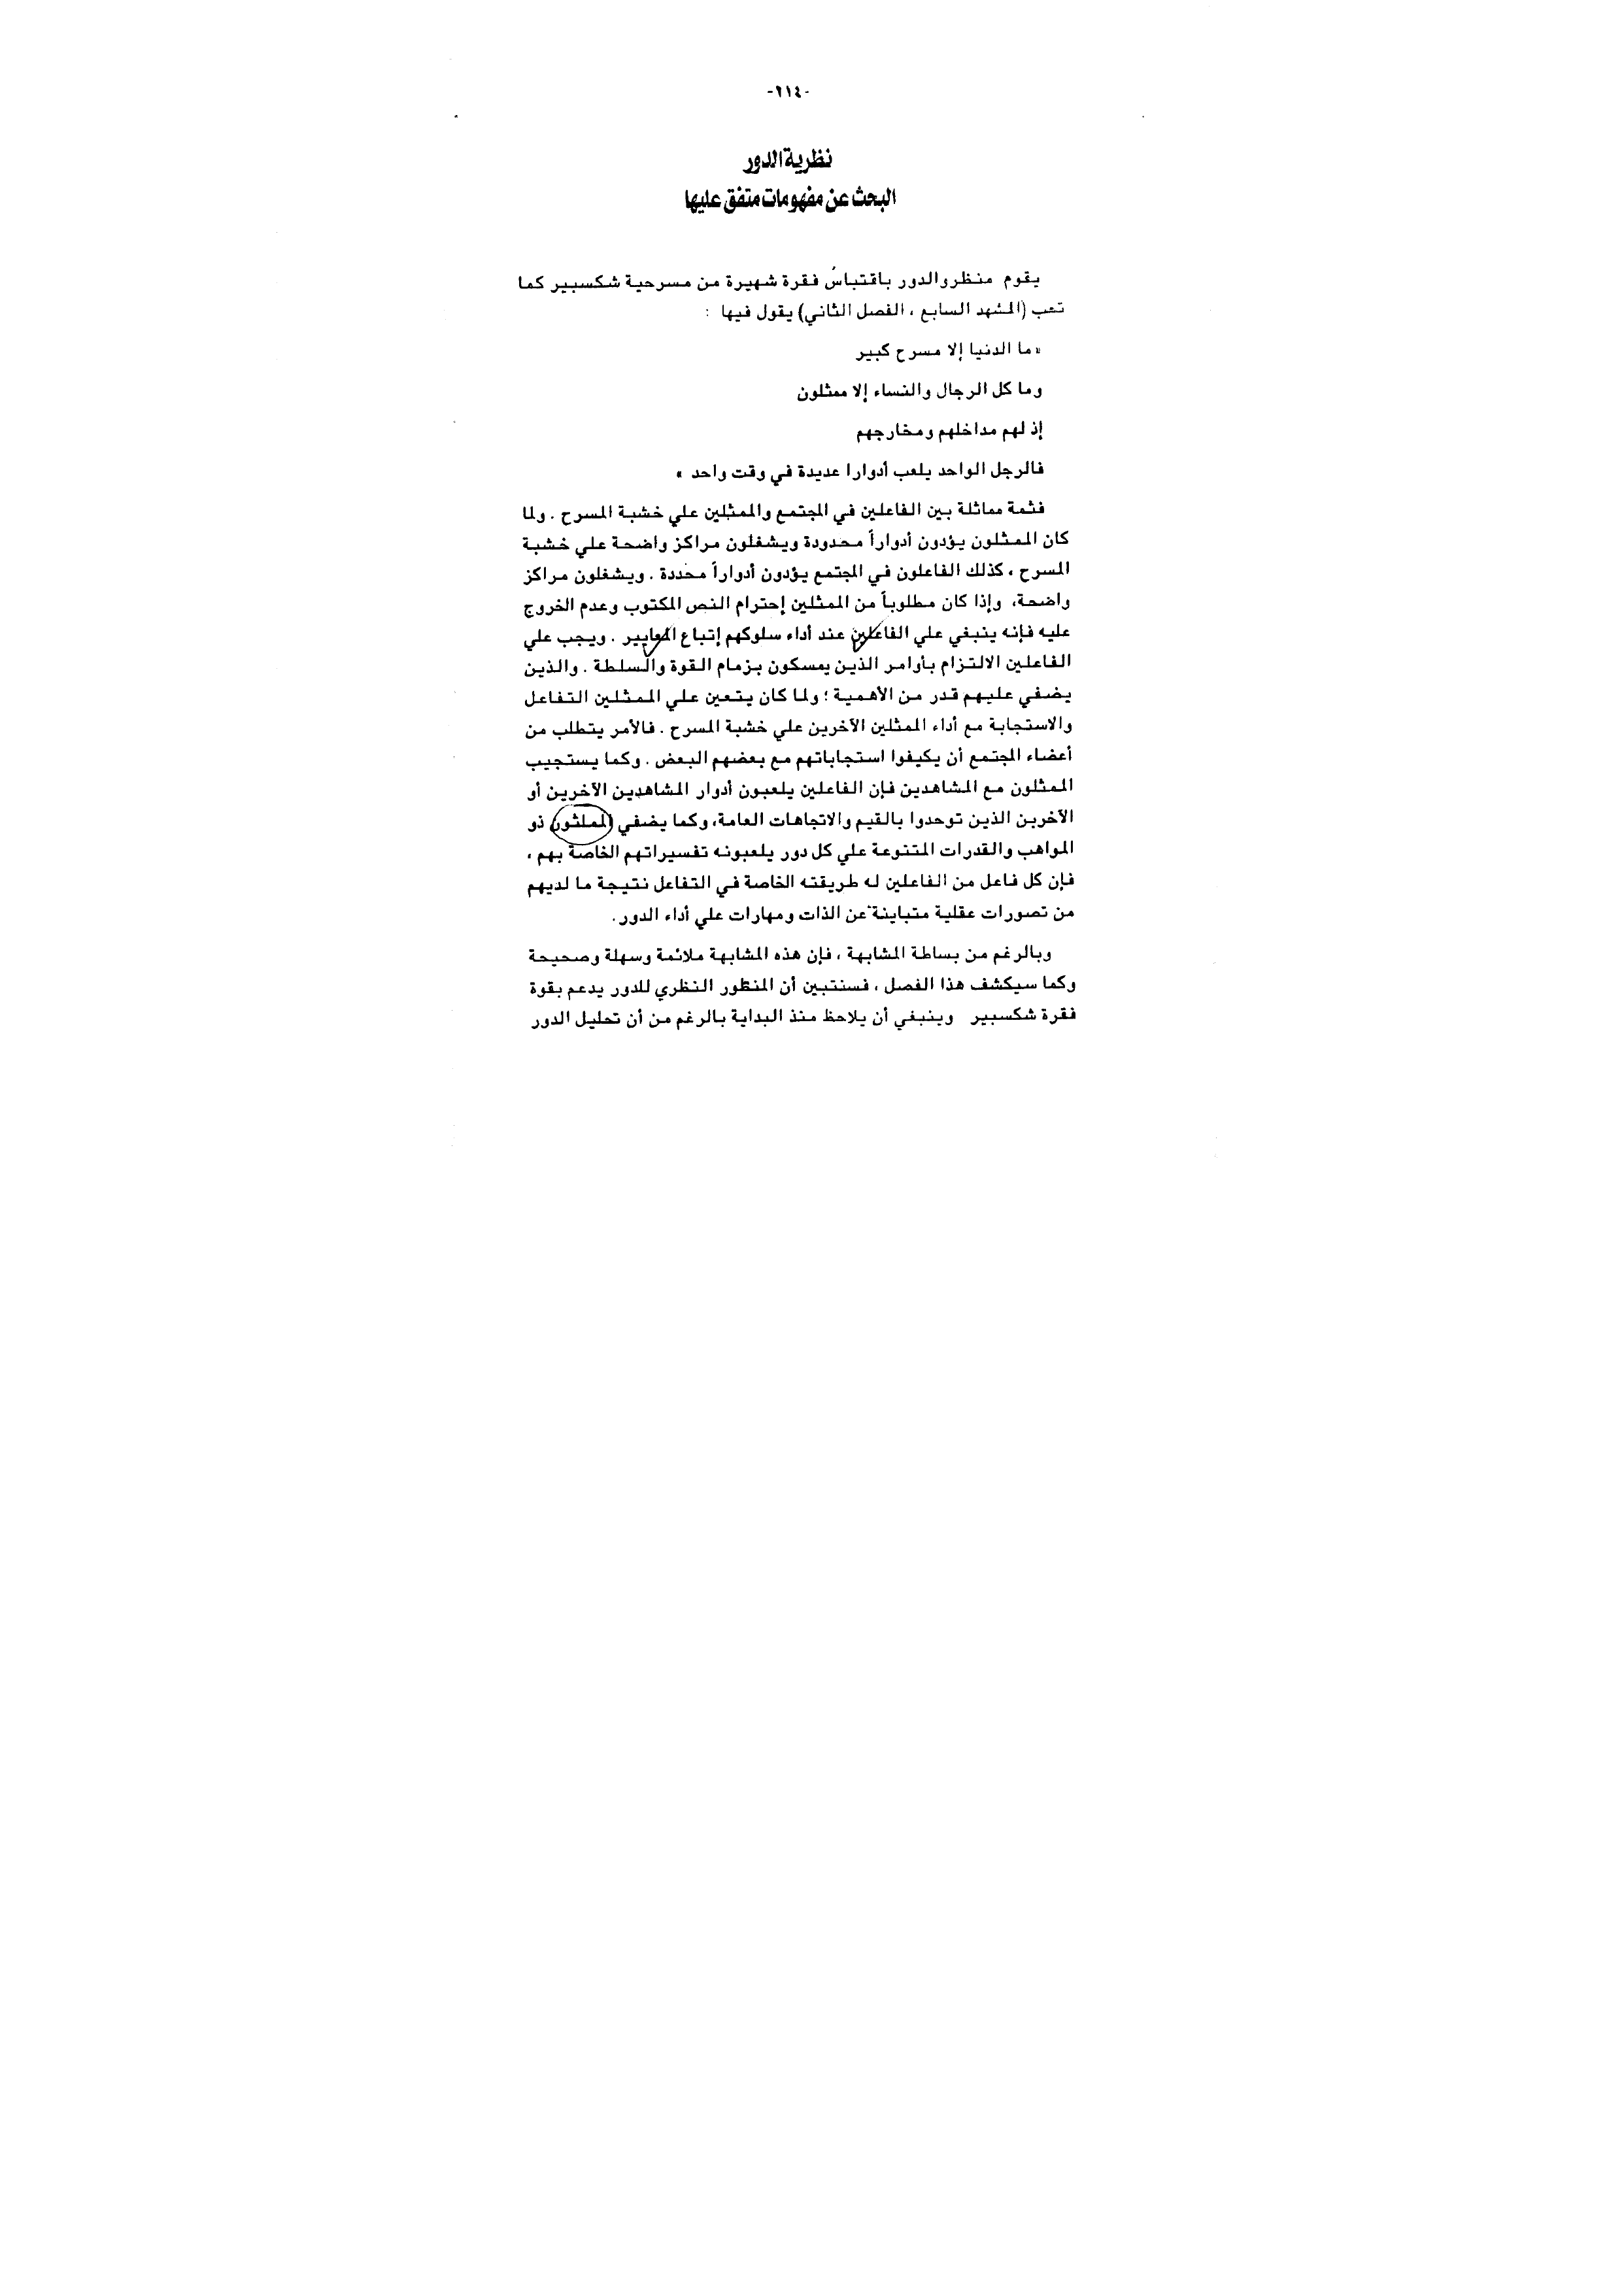 -٢١٤-
نظرية الدور
البحث عن مفهومات متفق عليها
يقوم منظرو الدور باقتباس فقرة شهيرة من مسرحية شكسبير كما
تحب (المشهد السابع ، الفصل الثاني) يقول فيها :
« ما الدنيا إلا مسرح كبير
وما كل الرجال والنساء إلا ممثلون
إذ لهم مداخلهم ومخارجهم
فالرجل الواحد يلعب أدوارا عديدة في وقت واحد »
فثمة مماثلة بين الفاعلين في المجتمع والممثلين علي خشبة المسرح . ولما
كان الممثلون يؤدون أدواراً محدودة ويشغلون مراكز واضحة علي خشبة
المسرح ، كذلك الفاعلون في المجتمع يؤدون أدواراً محددة . ويشغلون مراكز
واضحة، وإذا كان مطلوباً من الممثلين إحترام النص المكتوب وعدم الخروج
عليه فإنه ينبغي علي الفاعلين عند أداء سلوكهم إتباع المعايير . ويجب علي
الفاعلين الالتزام بأوامر الذين يمسكون بزمام القوة والسلطة . والذين
يضفي عليهم قدر من الأهمية ؛ ولما كان يتعين علي الممثلين التفاعل
والاستجابة مع أداء الممثلين الآخرين علي خشبة المسرح . فالأمر يتطلب من
أعضاء المجتمع أن يكيفوا استجاباتهم مع بعضهم البعض . وكما يستجيب
الممثلون مع المشاهدين فإن الفاعلين يلعبون أدوار المشاهدين الآخرين أو
الآخرين الذين توحدوا بالقيم والاتجاهات العامة، وكما يضفي المملثون ذو
المواهب والقدرات المتنوعة علي كل دور يلعبونه تفسيراتهم الخاصة بهم ،
فإن كل فاعل من الفاعلين له طريقته الخاصة في التفاعل نتيجة ما لديهم
من تصورات عقلية متباينة عن الذات ومهارات علي أداء الدور.
وبالرغم من بساطة المشابهة ، فإن هذه المشابهة ملائمة وسهلة وصحيحة
وكما سيكشف هذا الفصل ، فسنتبين أن المنظور النظري للدور يدعم بقوة
فقرة شكسبير وينبغي أن يلاحظ منذ البداية بالرغم من أن تحليل الدور